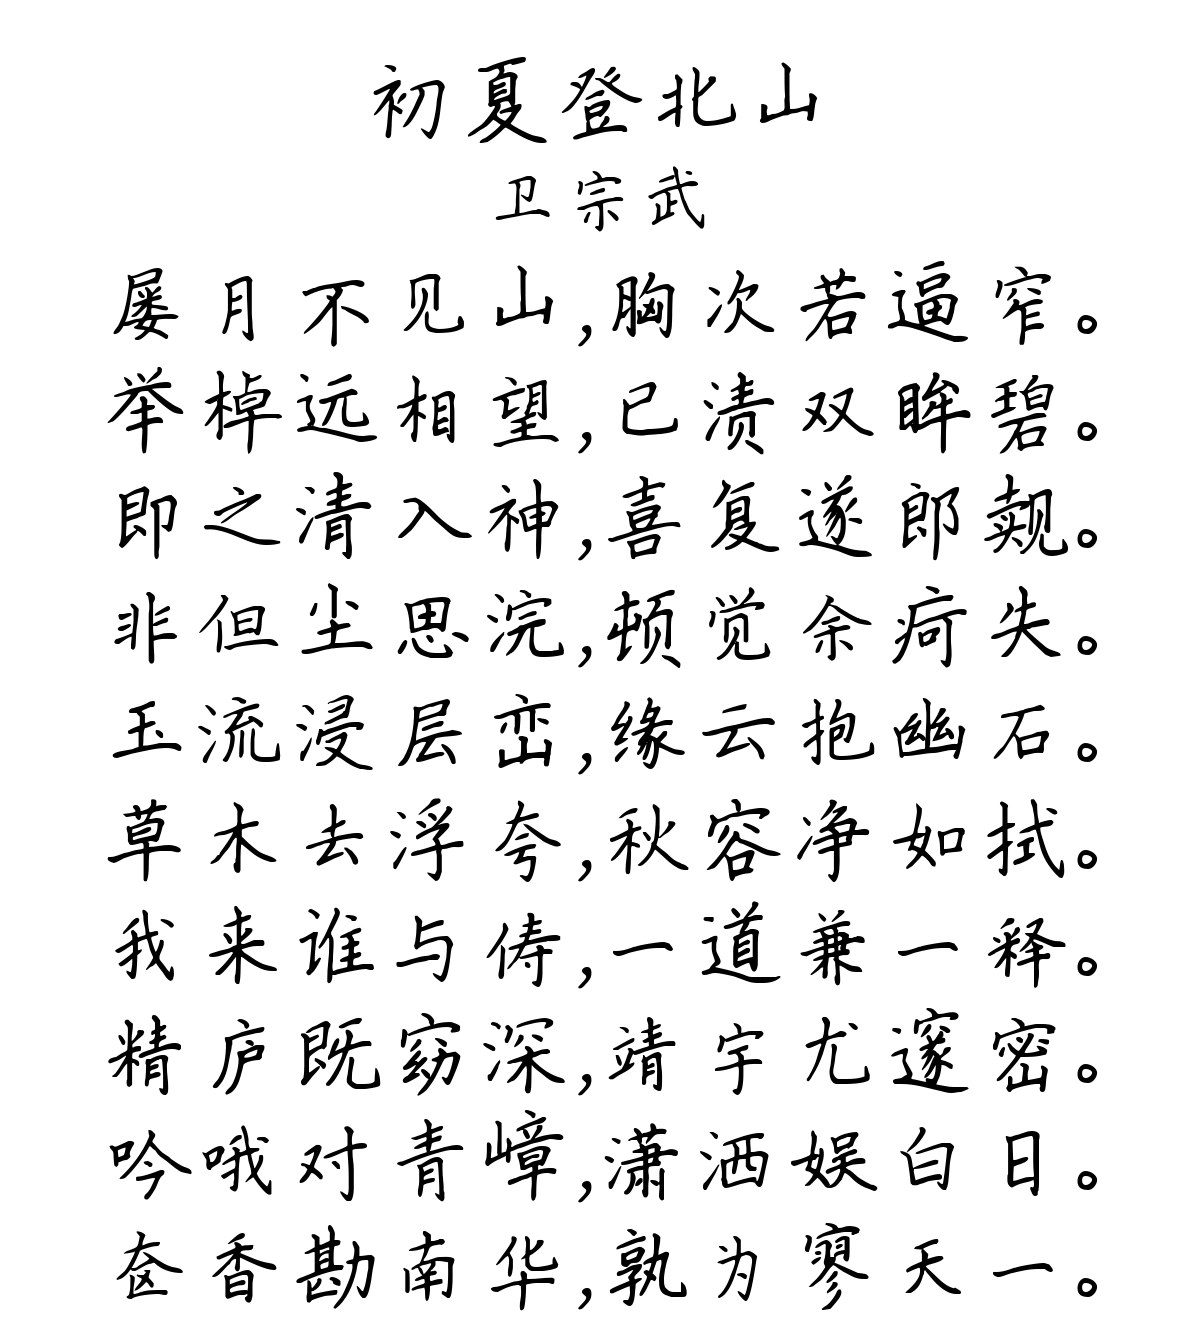 初夏登北山
卫宗武
屡月不见山,胸次若逼窄。
举棹远相望,已渍双眸碧。
即之清入神,喜复遂郎觌。
非但尘思浣,顿觉余疴失。
玉流浸层峦,缘云抱幽石。
草木去浮夸,秋容净如拭。
我来谁与俦,一道兼一释。
精庐既窈深,靖宇尤邃密。
吟哦对青嶂,潇洒娱白日。
奁香勘南华,孰为寥天一。